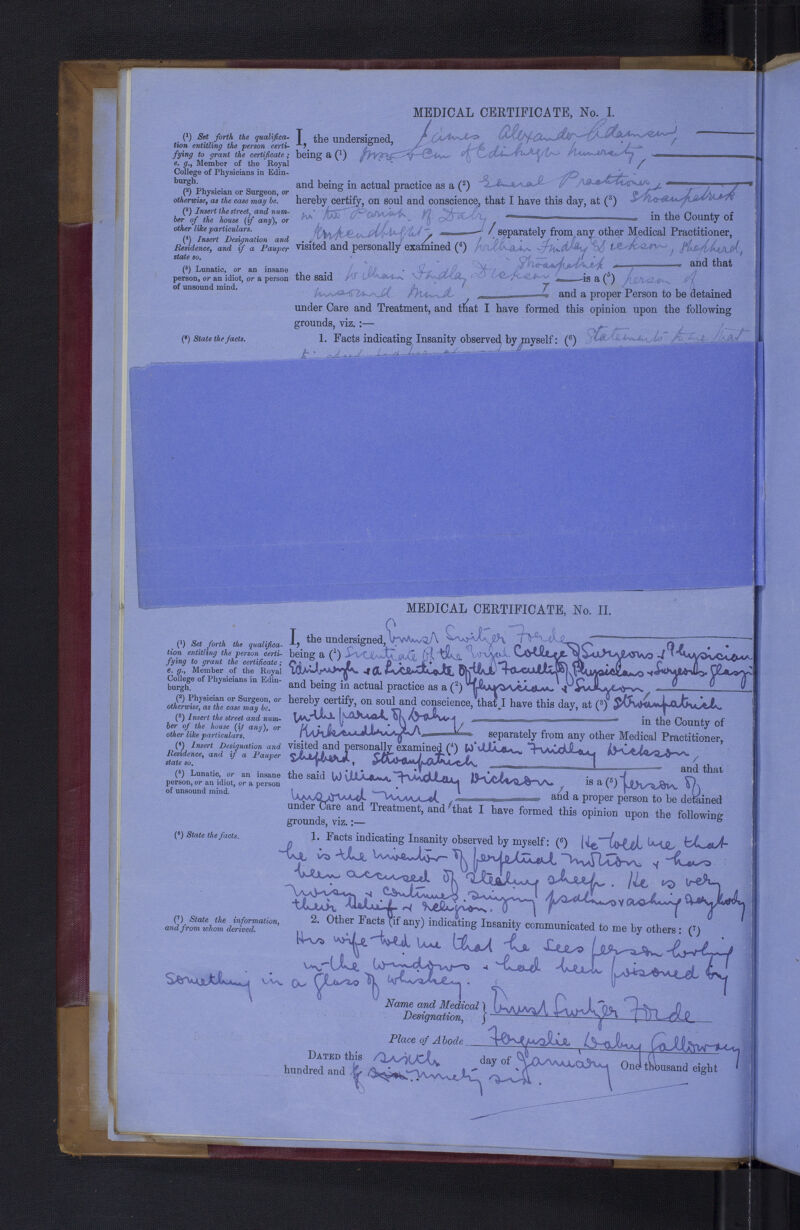 MEDICAL CERTIFICATE, No. I.
(¹) Set forth the qualifica-
tion entitling the person certi-
fying to grant the certificate;
e. g., Member of the Royal
College of Physicians in Edin-
burgh.
(²) Physician or Surgeon, or
otherwise, as the case may be.
(³) Insert the street, and num-
ber of the house (if any), or
other like particulars.
(⁴) Insert Designation and
Residence, and if a Pauper
state so.
(⁵) Lunatic, or an insane
person, or an idiot, or a person
of unsound mind.
I, the undersigned, James Alexander Adamson,
being a (¹) of Edinburgh University,
and being in actual practice as a (²) General Practitioner,
hereby certify, on soul and conscience, that I have this day, at (³) Stroanpatrick
in the Parish of Dalry, in the County of
Kirkcudbright, separately from any other Medical Practitioner,
visited and personally examined (⁴) William Findlay Dickson, Shepherd,
Stroanpatrick and that
the said William Findlay Dickson is a (⁵) person of
unsound mind, and a proper Person to be detained
under Care and Treatment, and that I have formed this opinion upon the following
grounds, viz. :—
(⁶) State the facts.
1. Facts indicating Insanity observed by myself: (⁶) Statements to me that
MEDICAL CERTIFICATE, No. II.
(¹) Set forth the qualifica-
tion entitling the person certi-
fying to grant the certificate;
e. g., Member of the Royal
College of Physicians in Edin-
burgh.
(²) Physician or Surgeon, or
otherwise, as the case may be.
(³) Insert the street and num-
ber of the house (if any), or
other like particulars.
(⁴) Insert Designation and
Residence, and if a Pauper
state so.
(⁵) Lunatic, or an insane
person, or an idiot, or a person
of unsound mind.
I, the undersigned, Ernest Switzer Forde
being a (¹) Licentiate of the Royal College of Surgeons & Physicians
Edinburgh & a Licentiate of the Faculty of Physicians & Surgeons Glasgow
and being in actual practice as a (²) Physician & Surgeon,
hereby certify, on soul and conscience, that I have this day, at (³) Stroanpatrick
in the parish of Dalry, in the County of
Kirkcudbright separately from any other Medical Practitioner,
visited and personally examined (⁴) William Findlay Dickson,
Shepherd, Stroanpatrick and that
the said William Findlay Dickson, is a (⁵) person of
unsound mind, and a proper person to be detained
under Care and Treatment, and that I have formed this opinion upon the following
grounds, viz. :—
(⁶) State the facts.
1. Facts indicating Insanity observed by myself: (⁶) He told me that
he is the inventor of perpetual motion & has
been accused of stealing sheep. He is very
noisy & continues singing psalms & asking everybody
their belief & religion.
(⁷) State the information,
and from whom derived.
2. Other Facts (if any) indicating Insanity communicated to me by others: (⁷)
His wife told me that he sees person looking
in the windows & had been poisoned by
something in a glass of whiskey.
Name and Medical
Designation, Ernest Switzer Forde
Place of Abode Ferguslie, Dalry Galloway
DATED this sixth day of January One thousand eight
hundred and ninety six.